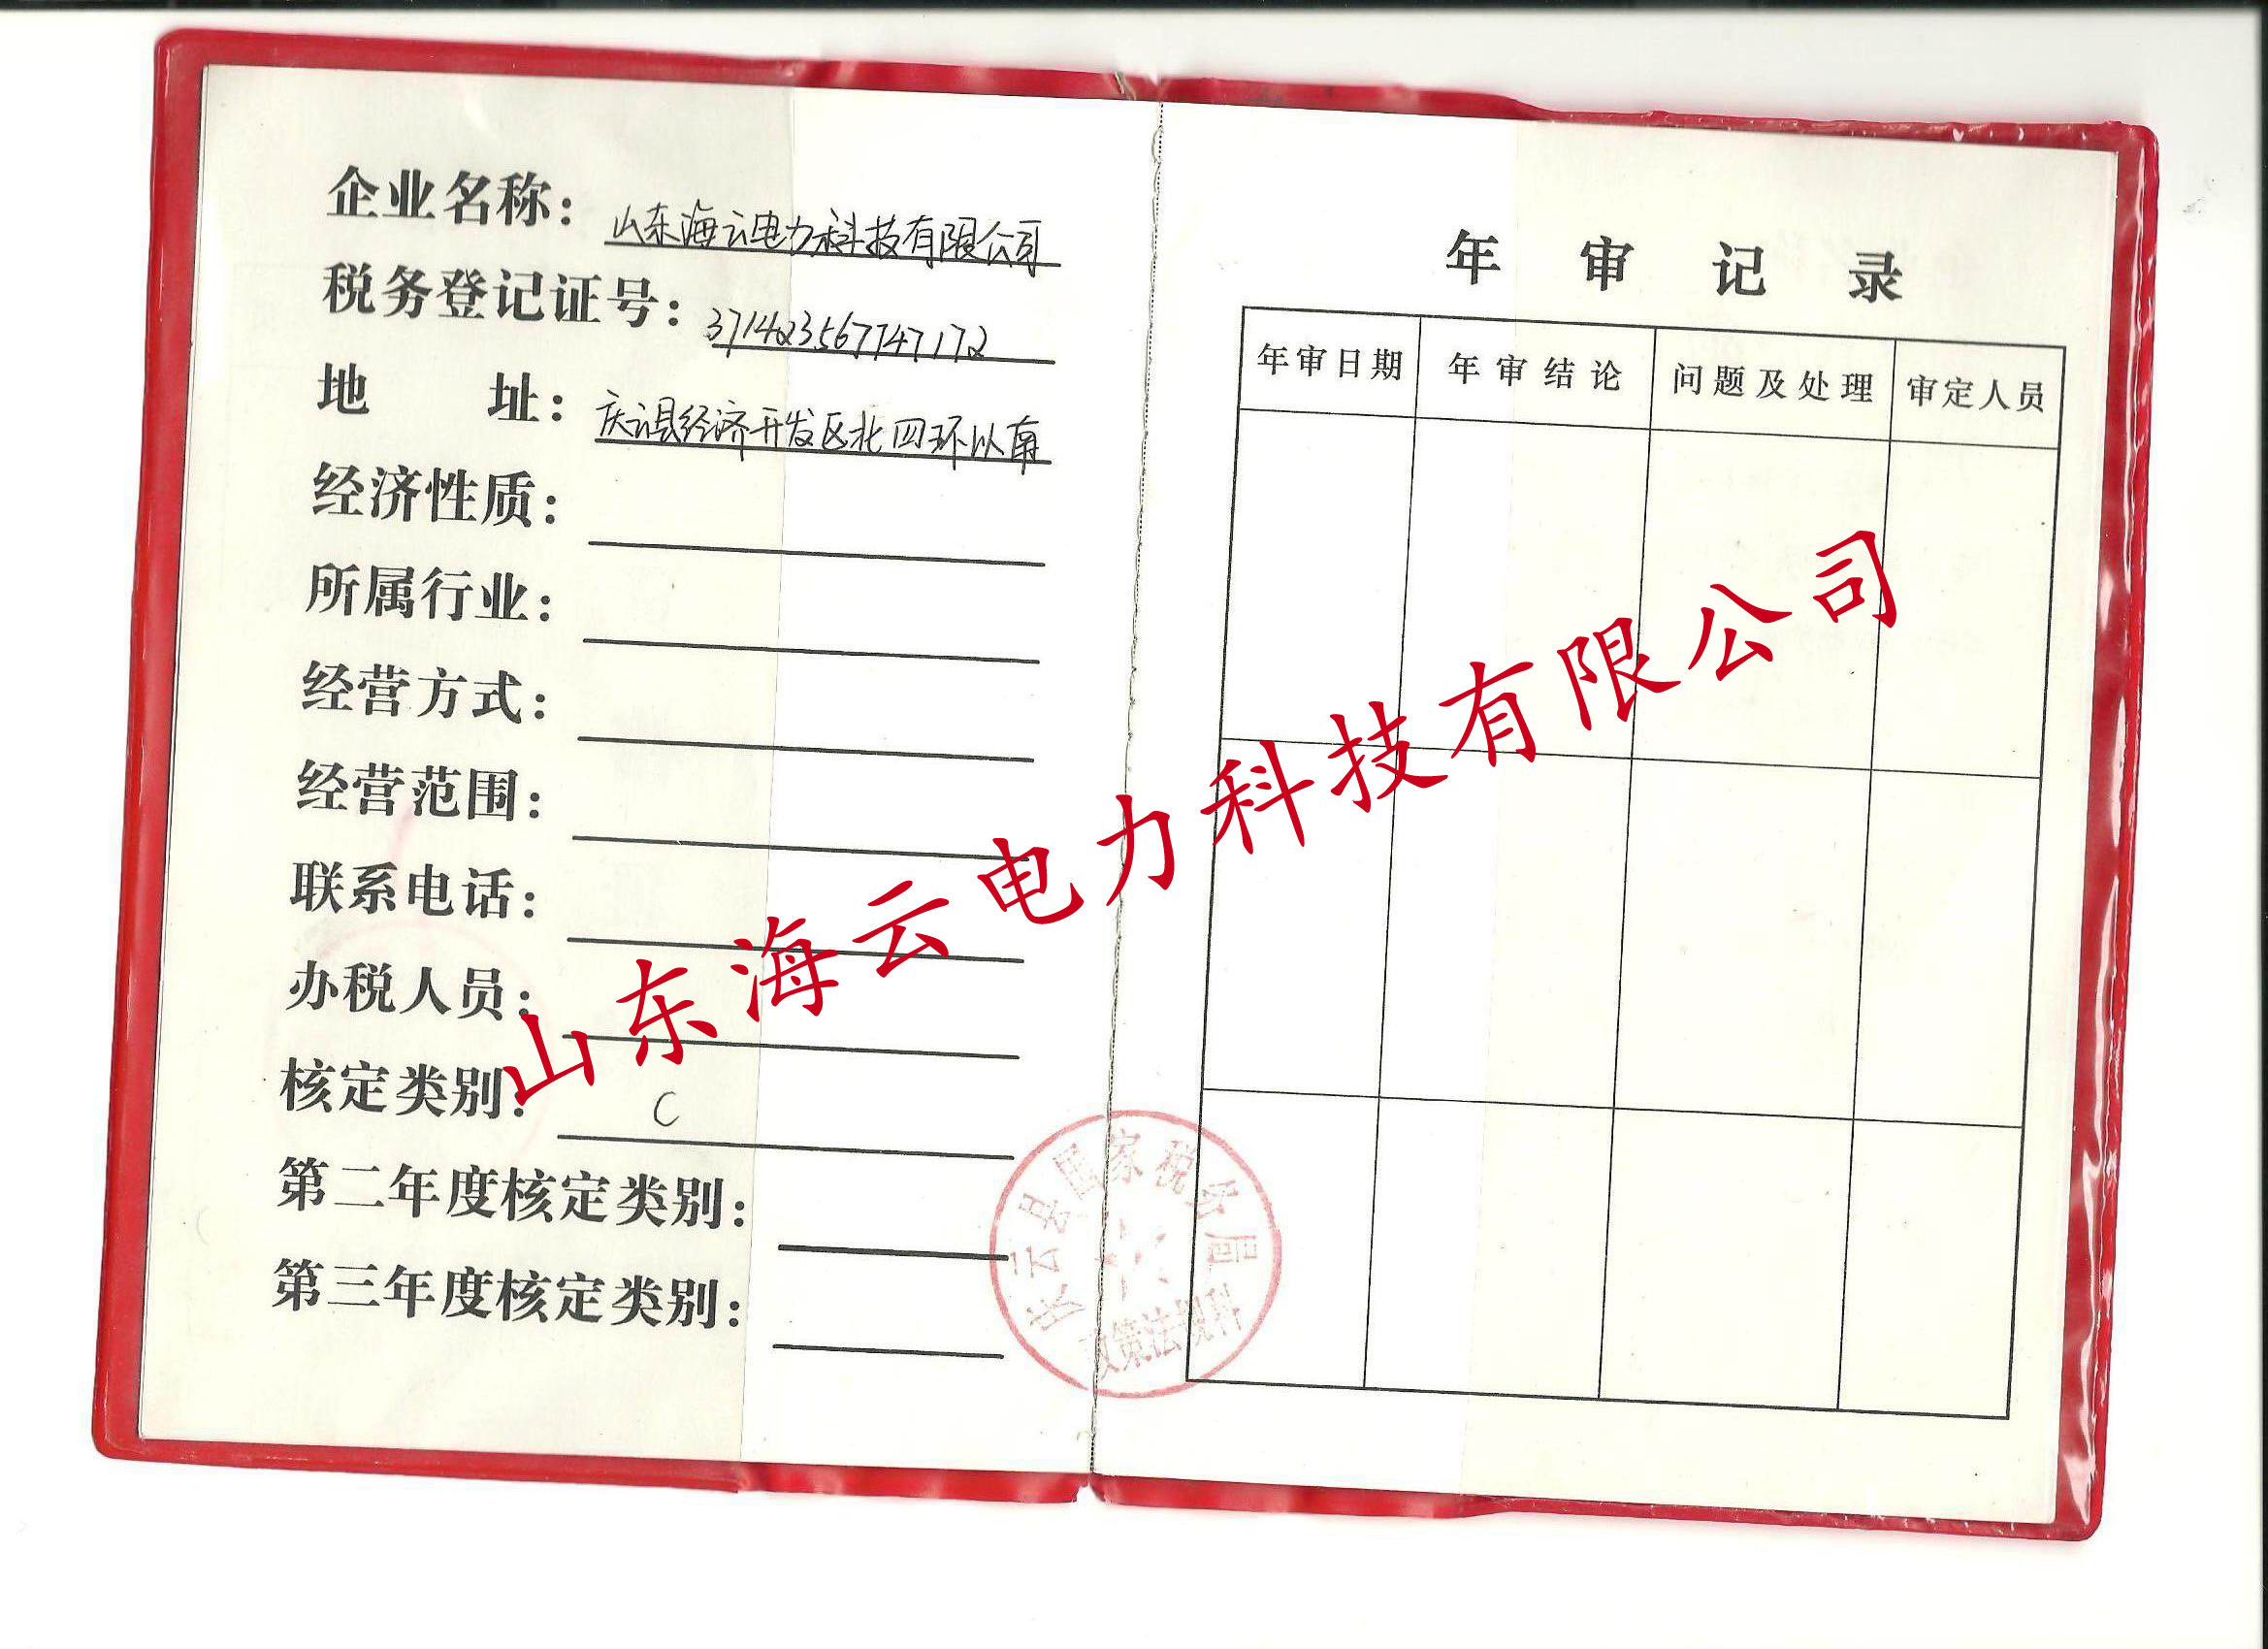 企业名称：山东海云电力科技有限公司
税务登记证号：371423567747172
地 址：庆云县经济开发区北四环以南
经济性质：
所属行业：
经营方式：
经营范围：
联系电话：
办税人员：
核定类别：C
第二年度核定类别：
第三年度核定类别：
年审记录
年审日期 年审结论 问题及处理 审定人员
庆云县国家税务局
政策法规科
山东海云电力科技有限公司